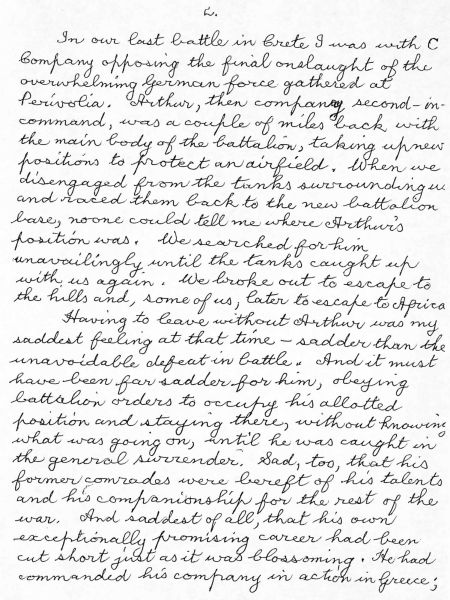 2.
In our last battle in Crete I was with C
Company opposing the final onslaught of the
overwhelming German force gathered at
Perivolia. Arthur, then company second-in-
command, was a couple of miles back with
the main body of the battalion, taking up new
positions to protect an airfield. When we
disengaged from the tanks surrounding us
and raced them back to the new battalion
base, no one could tell me where Arthur's
position was. We searched for him
unavailingly until the tanks caught up
with us again. We broke out to escape to
the hills and, some of us, later to escape to Africa
Having to leave without Arthur was my
saddest feeling at that time - sadder than the
unavoidable defeat in battle. And it must
have been far sadder for him, obeying
battalion orders to occupy his allotted
position and staying there, without knowing
what was going on, until he was caught in
the general surrender. Sad, too, that his
former comrades were bereft of his talents
and his companionship for the rest of the
war. And saddest of all, that his own
exceptionally promising career had been
cut short just as it was blossoming. He had
commanded his company in action in Greece;